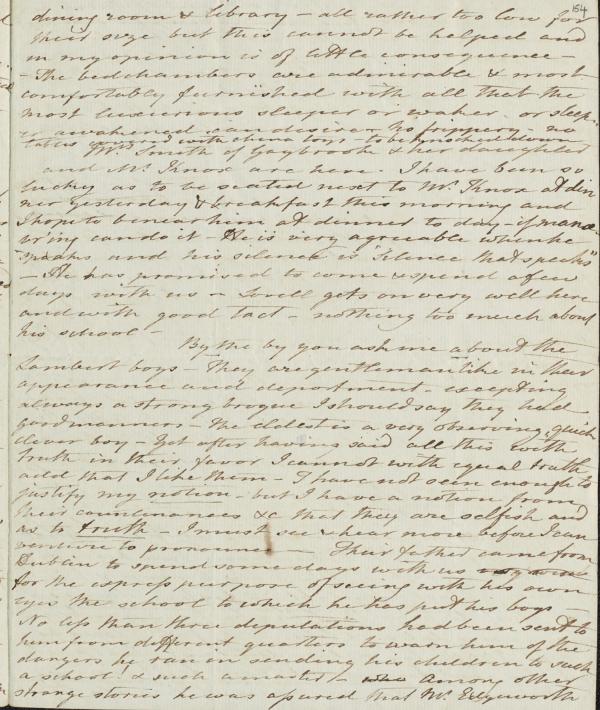 154
dining room & library – all rather too low for
their size but this cannot be helped and
in my opinion is of little consequence –
– The bedchambers are admirable & most
comfortably furnished with all that the
most luxurious sleeper or waker or sleep-
er awakened can desire no frippery no
tables covered with china toys to be knocked down
Mrs. Smith of Gaybrook & her daughter
and Mr. Knox are here. I have been so
lucky as to be seated next to Mr. Knox at din
ner yesterday & breakfast this morning and
I hope to be near him at dinner to day if manœ-
vring can do it He is very agreeable when he
speaks and his silence is "silence that speaks"
– He has promised to come & spend a few
days with us – Lovell gets on very well here
and with good tact – nothing too much about
his school –
By the by you ask me about the
Lambert boys – They are gentlemanlike in their
appearance and deportment – excepting
always a strong brogue I should say they had
good manners – The eldest is a very observing, quick
clever boy – Yet after having said all this with
truth in their favor I cannot with equal truth
add that I like them – I have not seen enough to
justify my notion but I have a notion from
their countenances &c that they are selfish and
as to truth – I must see & hear more before I can
venture to pronounce – Their father came from
Dublin to spend some days with us
for the express purpose of seeing with his own
eyes the school to which he has put his boys –
No less than three deputations had been sent to
him from different quarters to warn him of the
dangers he ran in sending his children to such
a school & such a master – Among other
strange stories he was assured that Mr. Edgeworth